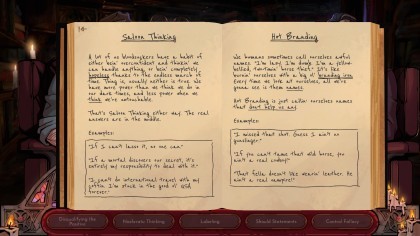 Saloon Thinking
A lot of us bloodsuckers have a habit of
either bein' overconfident and thinkin' we
can handle anything, or bein' completely
hopeless thanks to the endless search of
time. Thing is, usually neither is true. We
have more power than we think we do in
our dark times, and less power when we
think we're untouchable.
That's Saloon Thinking either way. The real
answers are in the middle.
Examples:
"If I can't lasso it, no one can."
"If a mortal discovers our secret, it's
entirely my responsibility to deal with it."
"I can't do international travel with my
coffin. I'm stuck in the good ol' USA
forever."
Hot Branding
We humans sometimes call ourselves awful
names. "I'm lazy. I'm dumb. I'm a yellow-
bellied, two-timin' horse thief." It's like
burnin' ourselves with a big ol' branding iron.
Every time we look at ourselves, all we're
gonna see is them names.
Hot Branding is just callin' ourselves names
that don't help us any.
Examples:
"I missed that shot. Guess I ain't no
gunslinger."
"If you can't tame that old horse, you
ain't a real cowboy."
"That fella doesn't like wearin' leather. He
ain't a real vampire!"
Disqualifying the
Positive
Hopeless Thinking
Labeling
Should Statements
Control Fallacy